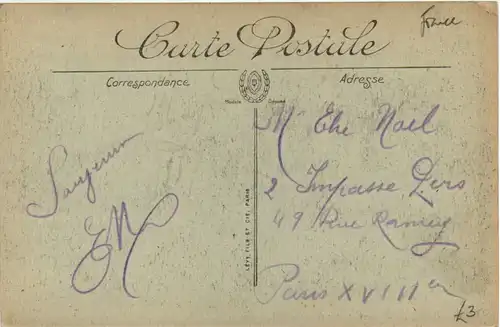 France
Carte Postale
Correspondance
Adresse
Modèle Déposé
Mr Elie Noël
2 Impasse Pers
49 Rue Ramey
Paris XVIIIe
EN
LÉVY FILS ET CIE, PARIS
£3